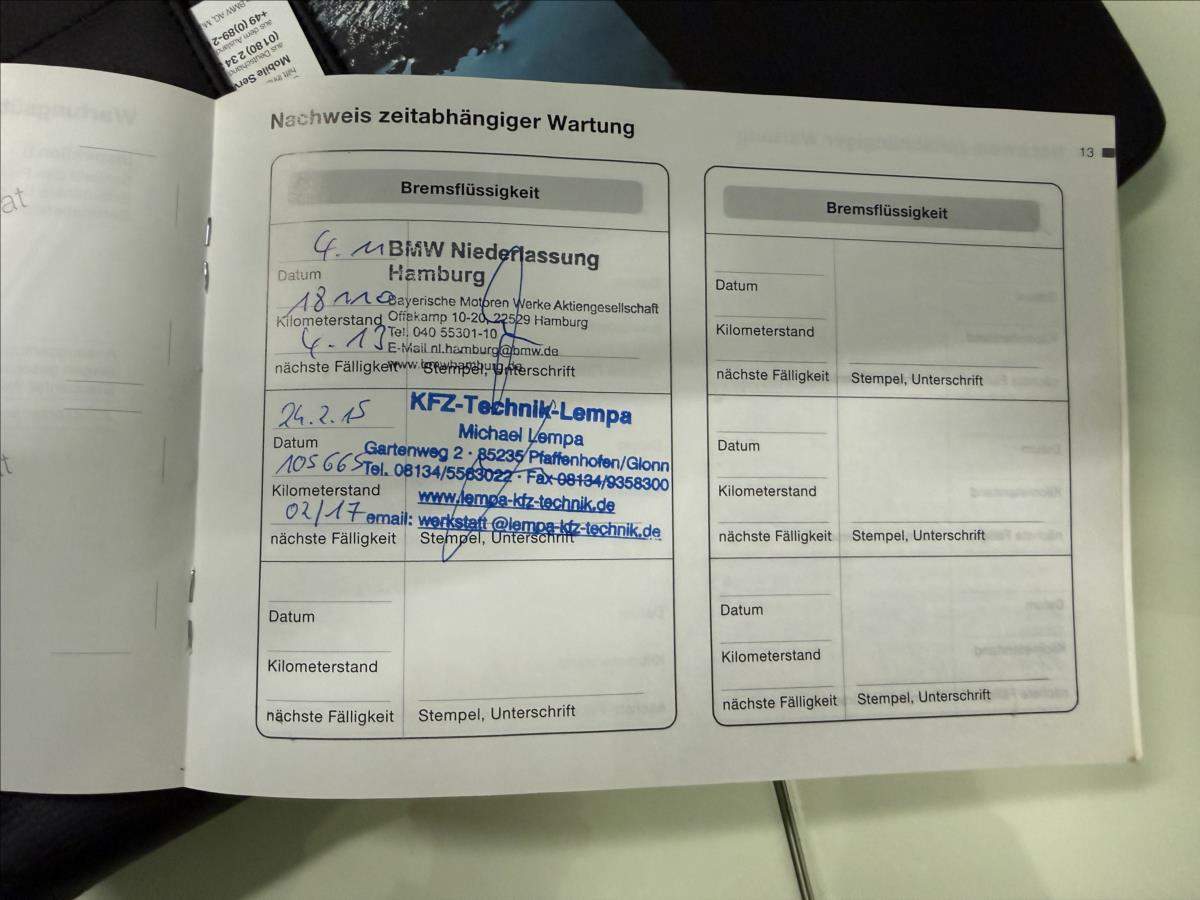 BMW AG, M
+49 (0)89-2
aus dem Ausland
(01 80) 2 34
aus Deutschland
Mobile Serv
Nachweis zeitabhängiger Wartung
13
Bremsflüssigkeit
4. 11
BMW Niederlassung
Hamburg
Datum
Bayerische Motoren Werke Aktiengesellschaft
Offakamp 10-20, 22529 Hamburg
Kilometerstand
Tel. 040 55301-10
4. 13
E-Mail nl.hamburg@bmw.de
www.bmwhamburg.de
nächste Fälligkeit
Stempel, Unterschrift
24.2.15
KFZ-Technik-Lempa
Michael Lempa
Datum
Gartenweg 2 · 85235 Pfaffenhofen/Glonn
105665
Tel. 08134/5583022 · Fax 08134/9358300
Kilometerstand
www.lempa-kfz-technik.de
02/17
email: werkstatt @lempa-kfz-technik.de
nächste Fälligkeit
Stempel, Unterschrift
Datum
Kilometerstand
nächste Fälligkeit
Stempel, Unterschrift
Bremsflüssigkeit
Datum
Kilometerstand
nächste Fälligkeit
Stempel, Unterschrift
Datum
Kilometerstand
nächste Fälligkeit
Stempel, Unterschrift
Datum
Kilometerstand
nächste Fälligkeit
Stempel, Unterschrift